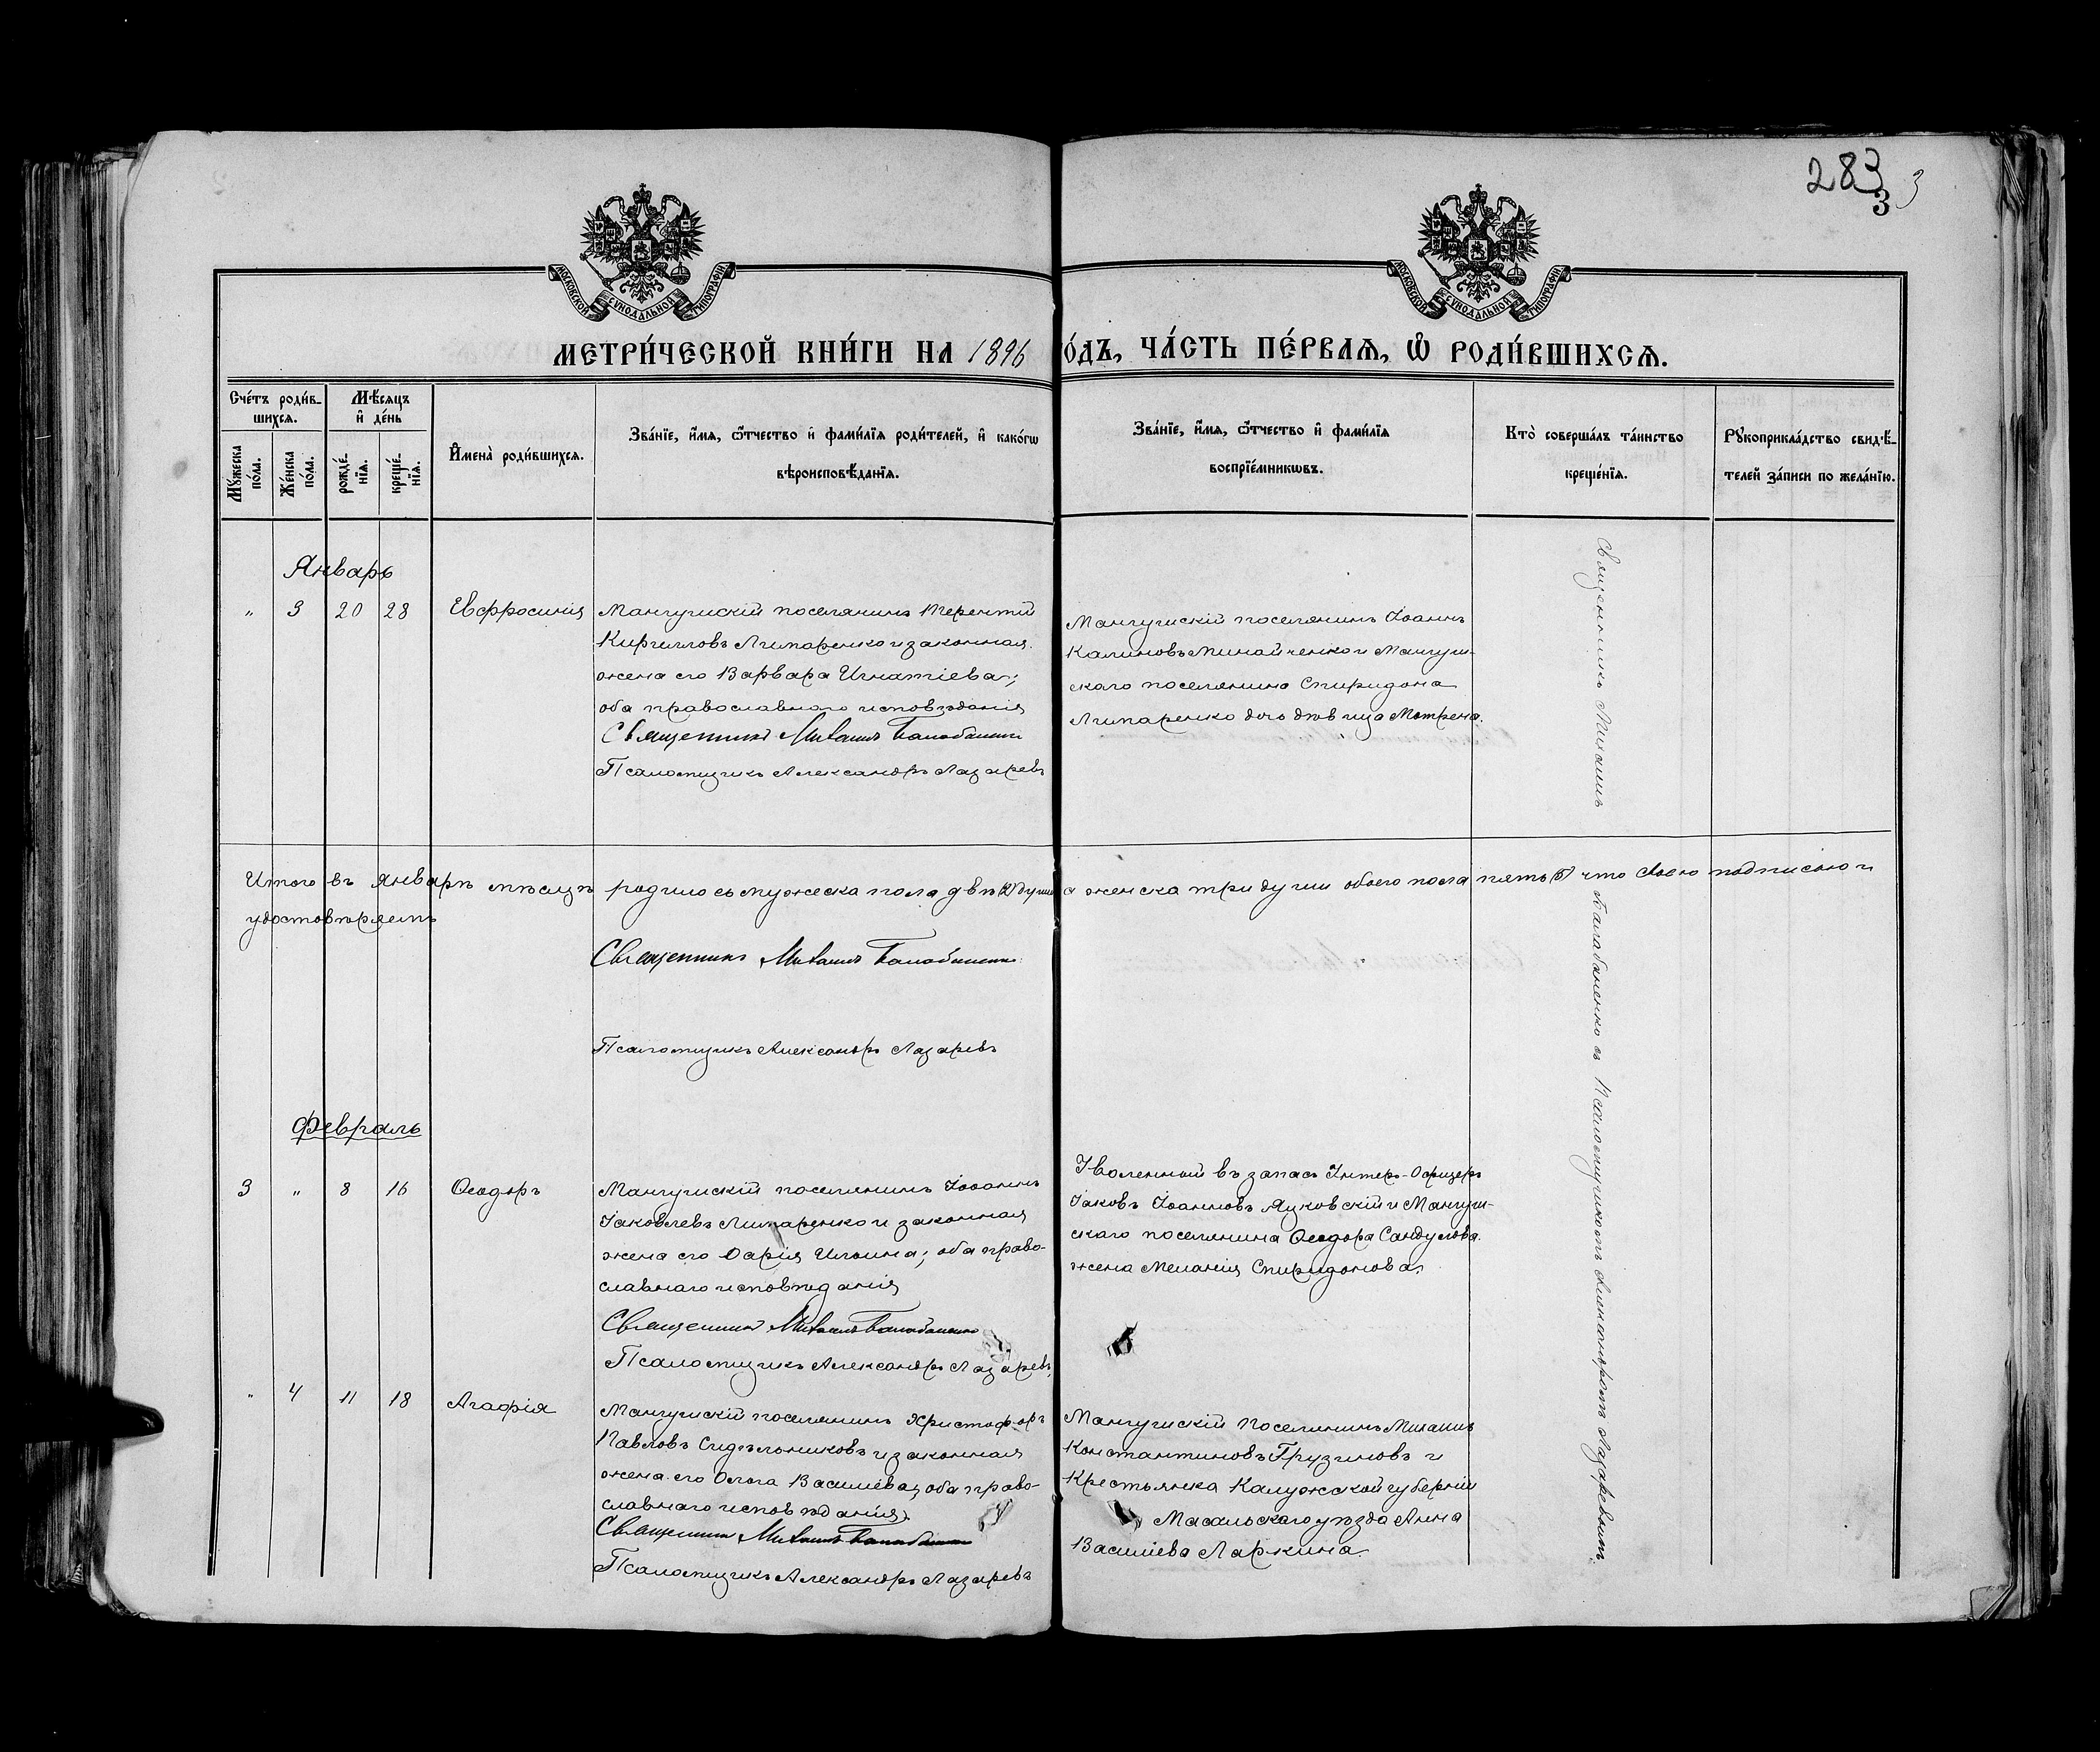 283
3
3
МОСКОВСКОЙ СУНОДАЛЬНОЙ ТИПОГРАФІИ
МОСКОВСКОЙ СУНОДАЛЬНОЙ ТИПОГРАФІИ
МЕТРИ́ЧЕСКОЙ КНИ́ГИ НА 1896
О́ДЪ, ЧА́СТЬ ПЕ́РВАѦ, Ѡ РОДИ́ВШИХСѦ.
Сче́тъ роди́в-
шихсѧ.
Мѣ́сѧцъ
и҆ де́нь
Мꙋ́жеска
по́ла.
Же́нска
по́ла.
рожде́-
нїѧ.
креще́-
нїѧ.
И҆мена̀ роди́вшихсѧ.
Зва́нїе, и҆́мѧ, ѻ҆́тчество и҆ фами́лїѧ роди́телей, и҆ како́гѡ
вѣроисповѣ́данїѧ.
Зва́нїе, и҆́мѧ, ѻ҆́тчество и҆ фами́лїѧ
воспрїе́мникѡвъ.
Кто̀ соверша́лъ та́инство
креще́нїѧ.
Рꙋкоприкла́дство свидѣ́-
телей за́писи по жела́нїю.
Январь
" 3 20 28 Евфросинія
Мангушскій поселянинъ Терентій
Кирилловъ Липаренко и законная
жена его Варвара Игнатіева;
оба православнаго исповѣданія
Священникъ Михаилъ Балабаненко
Псаломщикъ Александръ Лазаревъ
Мангушскій поселянинъ Іоаннъ
Калиновъ Минайченко и Мангуш-
скаго поселянина Спиридона
Липаренко дочь дѣвица Матрена.
Итого въ январѣ мѣсяцѣ родилось мужеска пола двѣ (2) души а женска три души обоего пола пять (5) что своею подписью и
удостовѣряемъ
Священникъ Михаилъ Балабаненко
Псаломщикъ Александръ Лазаревъ
Февраль
3 " 8 16 Ѳеодоръ
Мангушскій поселянинъ Іоаннъ
Іаковлевъ Липаренко и законная
жена его Дарія Ильина; оба право-
славнаго исповѣданія
Священникъ Михаилъ Балабаненко
Псаломщикъ Александръ Лазаревъ
Уволенный въ запасъ Унтеръ-Офицеръ
Іаковъ Іоанновъ Яцковскій и Мангуш-
скаго поселянина Ѳеодора Сандулова
жена Меланія Спиридонова.
" 4 11 18 Агафія
Мангушскій поселянинъ Христофоръ
Павловъ Сидѣльниковъ и законная
жена его Ольга Василіева; оба право-
славнаго исповѣданія
Священникъ Михаилъ Балабаненко
Псаломщикъ Александръ Лазаревъ
Мангушскій Поселянинъ Михаилъ
Константиновъ Грузиновъ и
Крестьянка Калужской губерніи
Масальскаго уѣзда Анна
Василіева Ларкина.
Священникъ Михаилъ Балабаненко съ Псаломщикомъ Александромъ Лазаревымъ